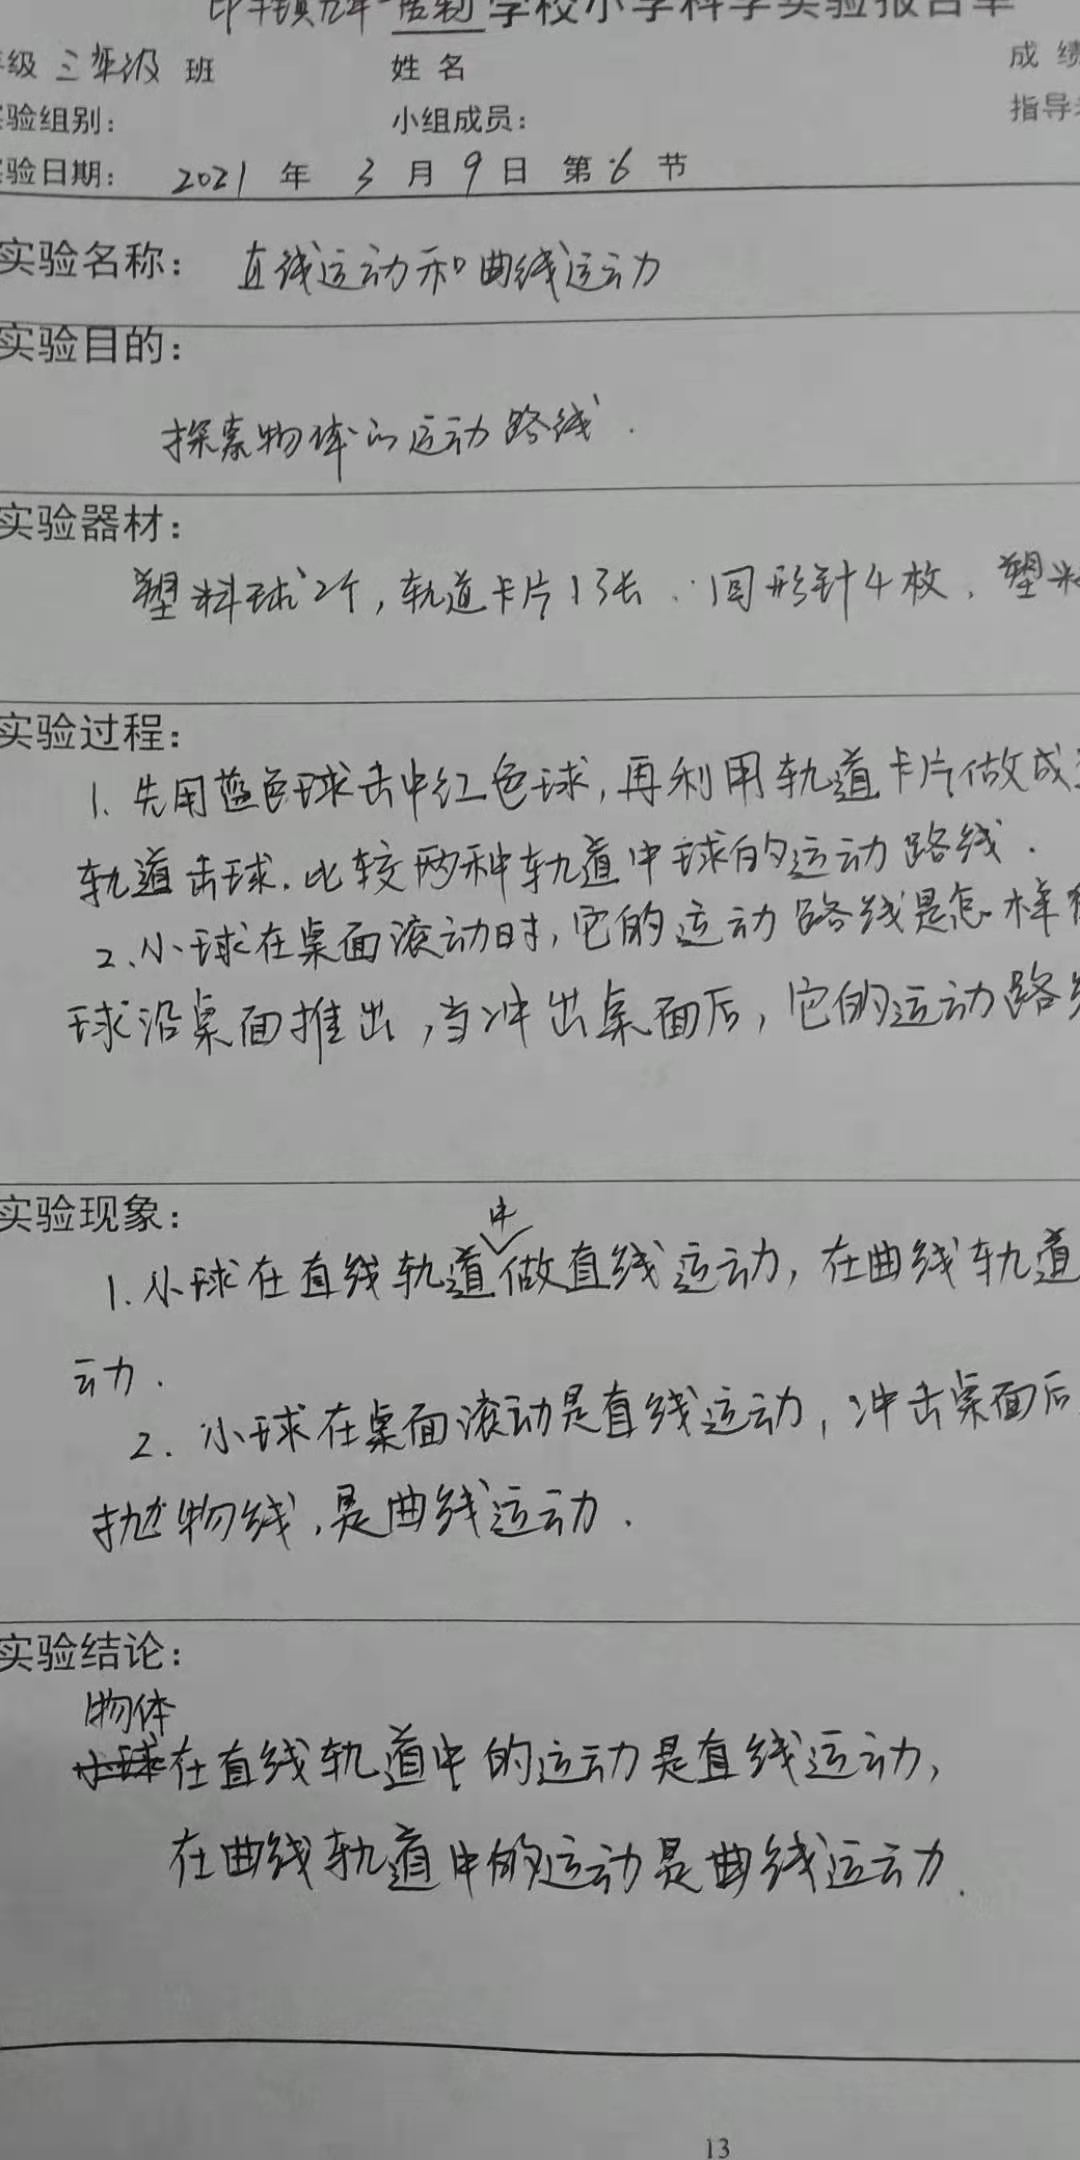 学校小学科学实验报告单
级 三年级 班 姓 名 成 绩
验组别： 小组成员： 指导
验日期： 2021 年 3 月 9 日 第 6 节
实验名称： 直线运动和曲线运动
实验目的：
探索物体的运动路线.
实验器材：
塑料球2个，轨道卡片13张、回形针4枚、塑料
实验过程：
1. 先用蓝色球击中红色球，再利用轨道卡片做成
轨道击球.比较两种轨道中球的运动路线.
2、小球在桌面滚动时，它的运动路线是怎样
球沿桌面推出，当冲出桌面后，它的运动路线
实验现象：
1. 小球在直线轨道中做直线运动，在曲线轨道
动.
2. 小球在桌面滚动是直线运动，冲击桌面后
抛物线，是曲线运动.
实验结论：
物体
小球在直线轨道中的运动是直线运动，
在曲线轨道中的运动是曲线运动.
13